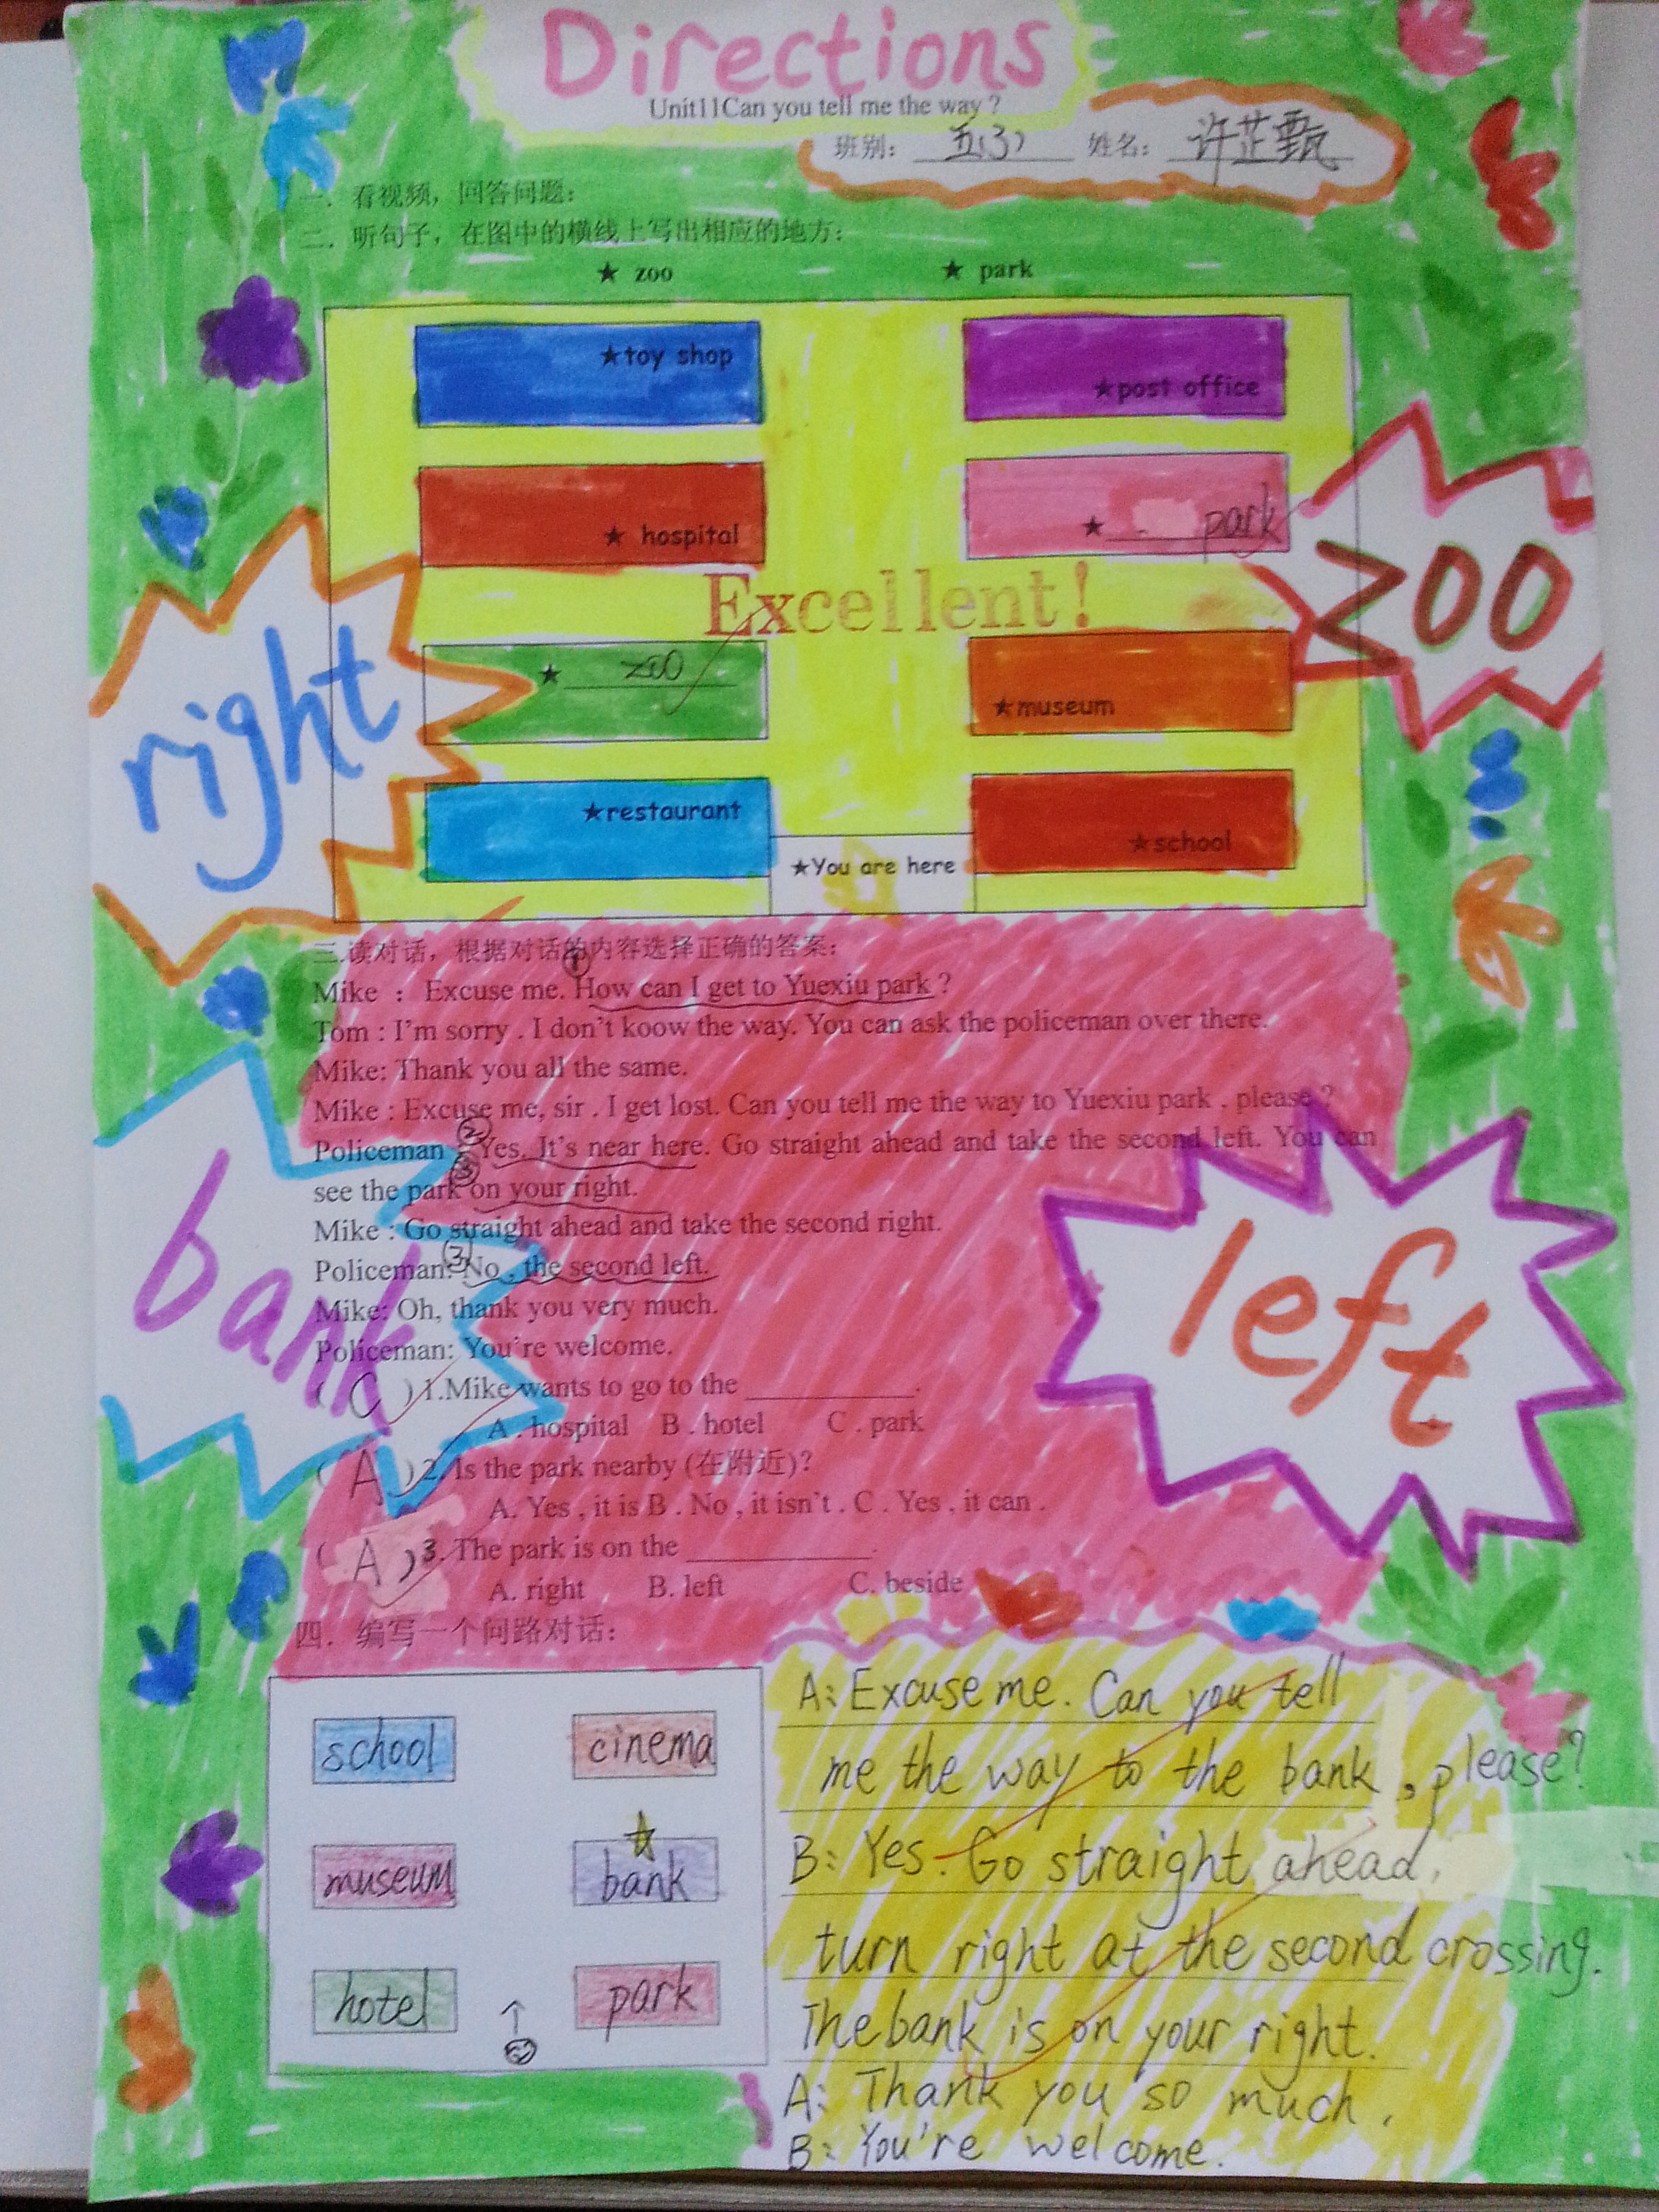 Directions
Unit11Can you tell me the way ?
班别： 五(3) 姓名： 许芷甄
一．看视频，回答问题：
二．听句子，在图中的横线上写出相应的地方：
★ zoo ★ park
★toy shop ★post office
★ hospital ★ park
zoo
Excellent!
right
★ zoo ★museum
★restaurant ★school
★You are here
三.读对话，根据对话的内容选择正确的答案：
①
Mike ： Excuse me. How can I get to Yuexiu park ?
Tom : I'm sorry . I don't koow the way. You can ask the policeman over there.
Mike: Thank you all the same.
Mike : Excuse me, sir . I get lost. Can you tell me the way to Yuexiu park , please ?
②
Policeman : Yes. It's near here. Go straight ahead and take the second left. You can
see the park on your right.
Mike : Go straight ahead and take the second right.
③
Policeman: No , the second left.
Mike: Oh, thank you very much.
Policeman: You're welcome.
bank
left
( C ) 1.Mike wants to go to the ____________.
A . hospital B . hotel C . park
( A ) 2. Is the park nearby (在附近)?
A. Yes , it is B . No , it isn't . C . Yes , it can .
( A ) 3. The park is on the _____________.
A. right B. left C. beside
四．编写一个问路对话：
school cinema
museum bank
hotel park
A: Excuse me. Can you tell
me the way to the bank , please?
B: Yes. Go straight ahead,
turn right at the second crossing.
The bank is on your right.
A: Thank you so much.
B: You're welcome.